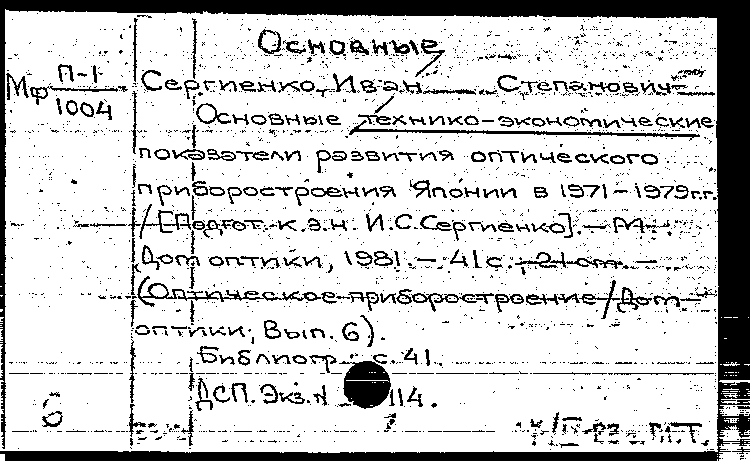 Основные
Мф П-1/1004
Сергиенко, Иван Степанович
Основные технико-экономические
показатели развития оптического
приборостроения Японии в 1971-1979гг.
/ [Подгот. к.э.н. И.С.Сергиенко]. - М.:
Дом оптики, 1981. - 41 с., 21 см. -
(Оптическое приборостроение / Дом
оптики; Вып. 6).
Библиогр.: с. 41.
ДСП. Экз. N 114.
6